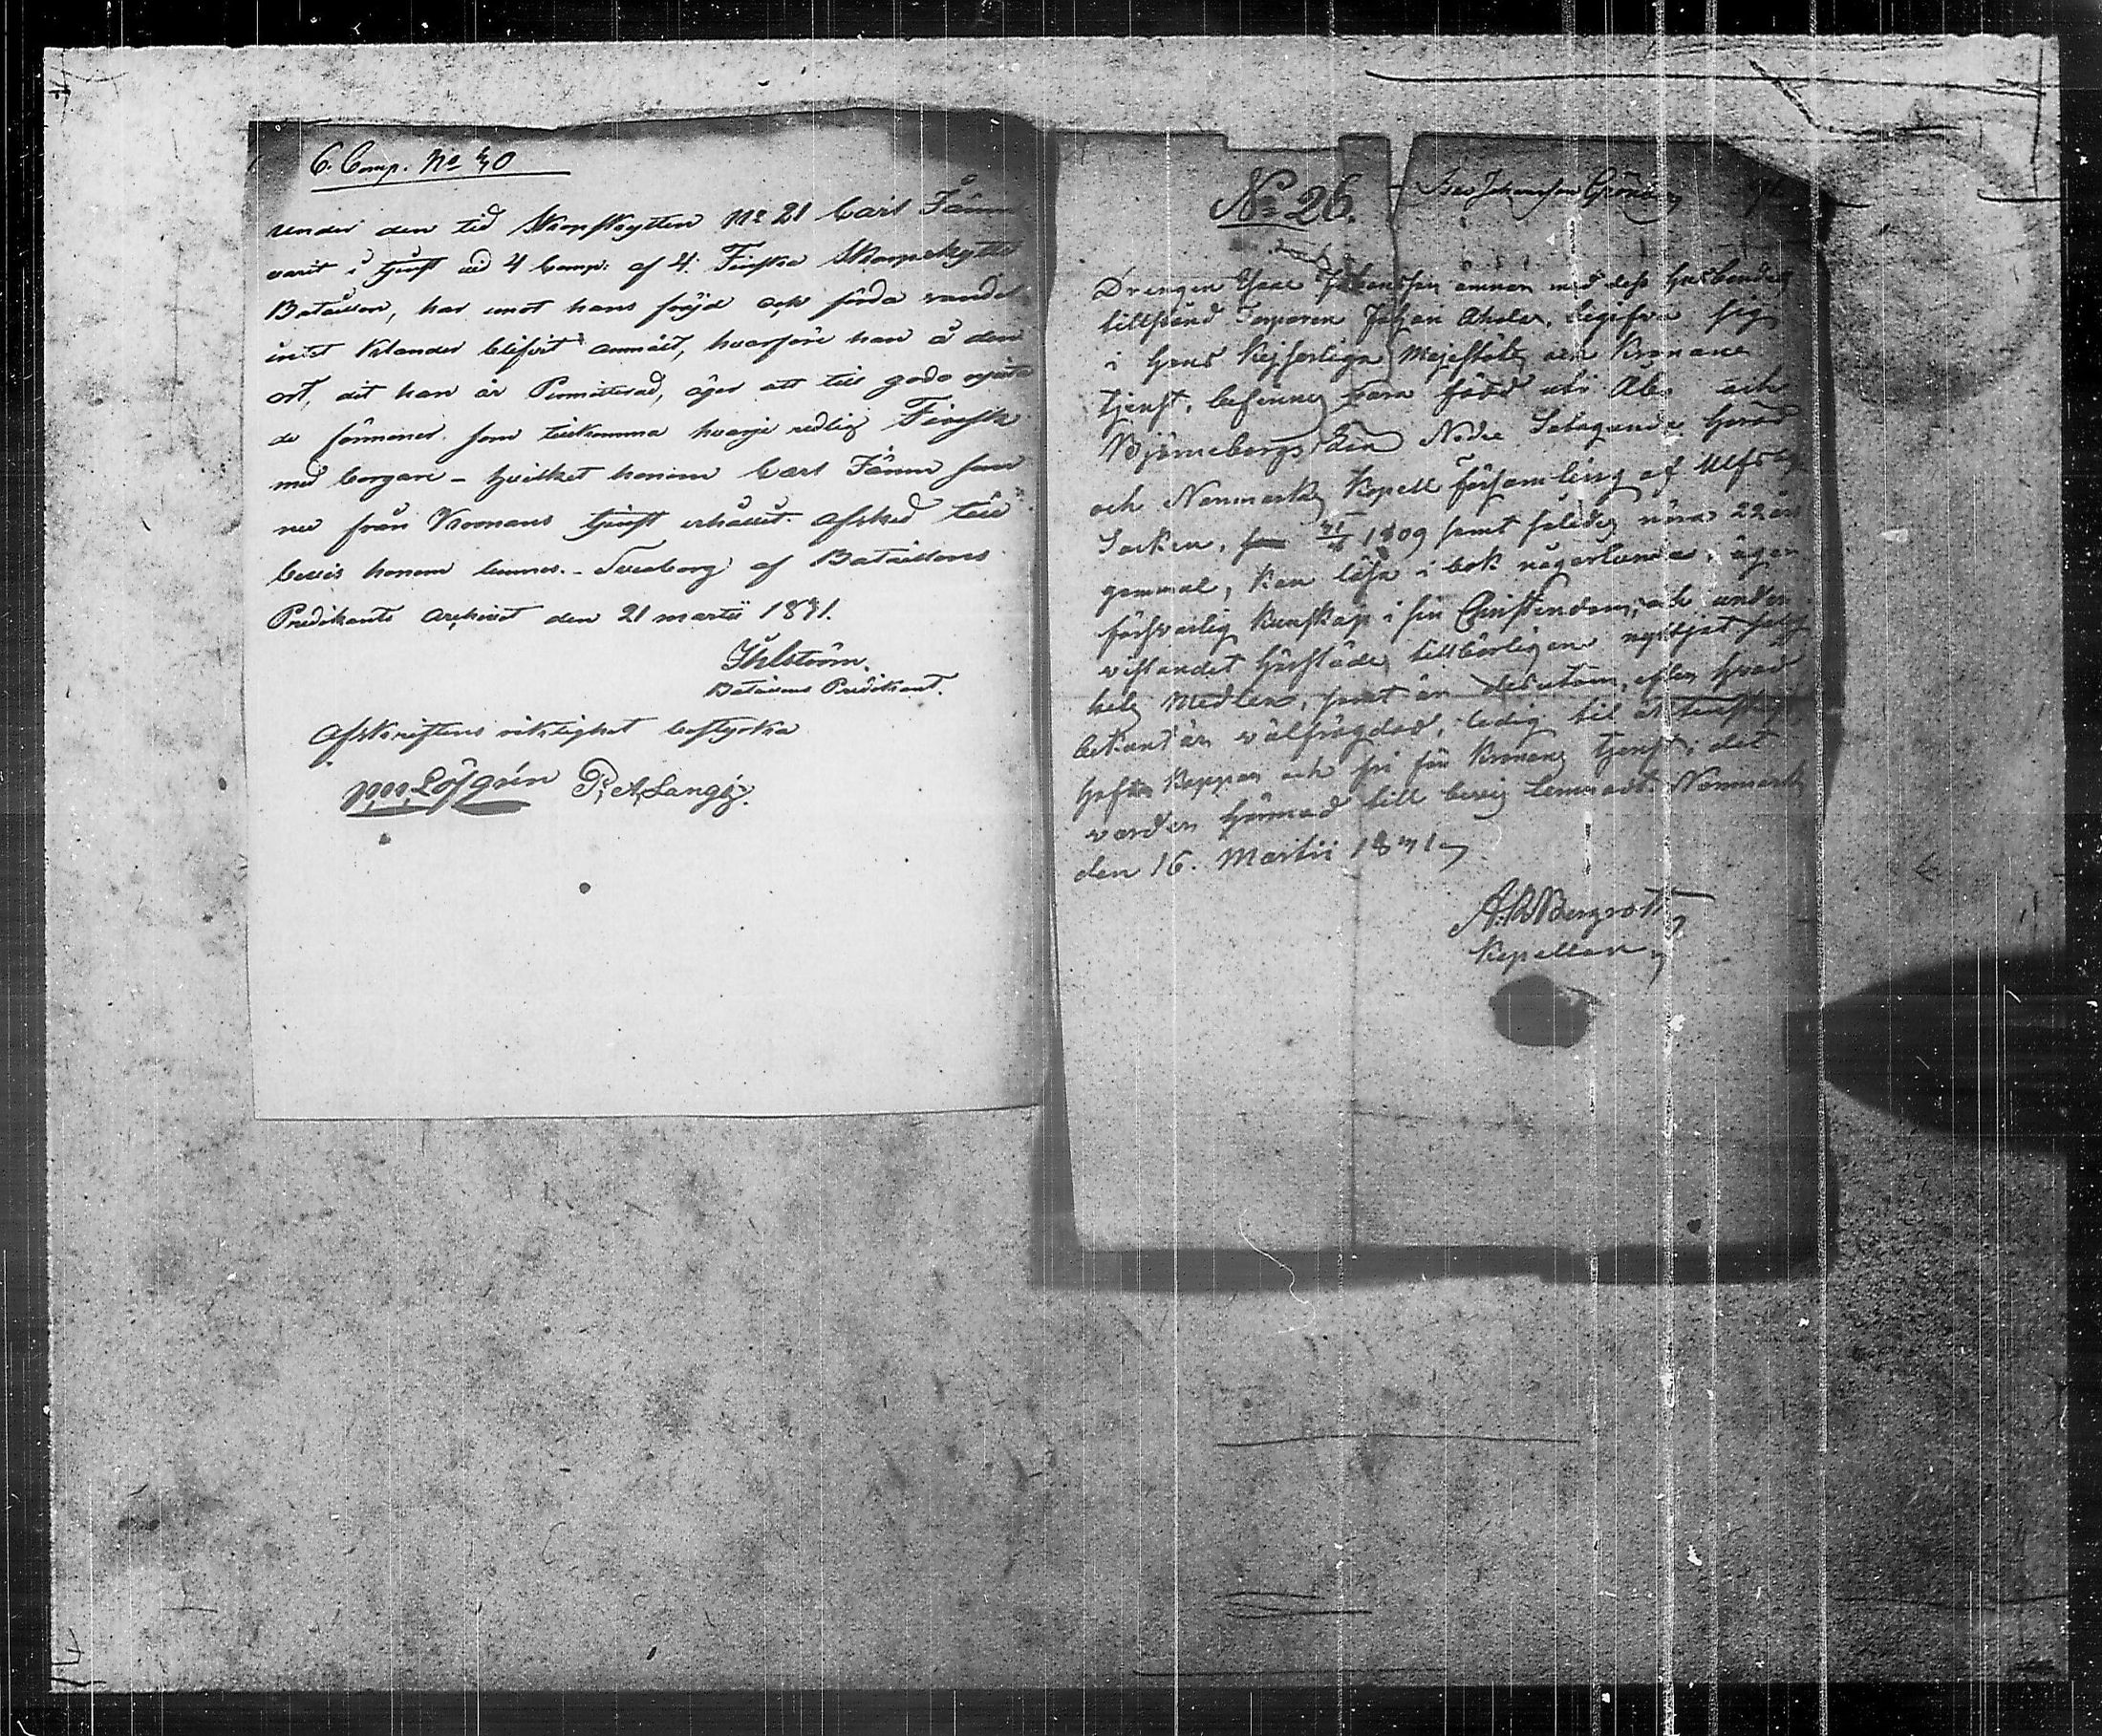 6. Comp. No 40
under den tid Skarpskytten No 21 Carl Fämm
varit i tjenst vid 4 Comp: af 4: Finska Skarpskytte
Bataillon, har emot hans fräjd och förda vandel
intet klander blifvit anmält, hvarföre han å den
ort, dit han är Permitterad, äger att till godo njuta
de förmoner som tillkomma hvarje redlig Finsk
med borgare – hvilket honom Carl Fämm som
nu från Kronans tjenst erhållit afsked till
bevis honom lemnas. – Sveaborg af Bataillons
Predikants Archivet den 21 martii 1831.
Ihlström.
Bataillons Predikant.
Afskriftens riktighet bestyrka
Löfgrén P. A. Lang
No 26. Johansson Grönberg
Drengen Isaac Johansson ämnar med dess husbondes
tillstånd Torparen Johan begifva sig
i Hans Kejserliga Majestäts och Kronans
tjenst, befinnes vara född uti Åbo och
Björneborgs Län Nedre Satagunda härad
och Nonmarks Kapell församling af Ulfsby
Socken, 1809 samt således nära 22 år
gammal, kan läsa i bok någorlunda, äger
försvarlig kunskap i sin Christendom, och under
vistandet härstädes tillbörligen nyttjat salig
hets Medlen, samt är desutom, efter hvad
bekant är välfrägdad, ledig til äktenskap
haft Koppor och fri för Kronans tjenst; det
varder härmed till bevis lemnadt. Nonmark
den 16. Martii 1831
Bergroth
Kapellan